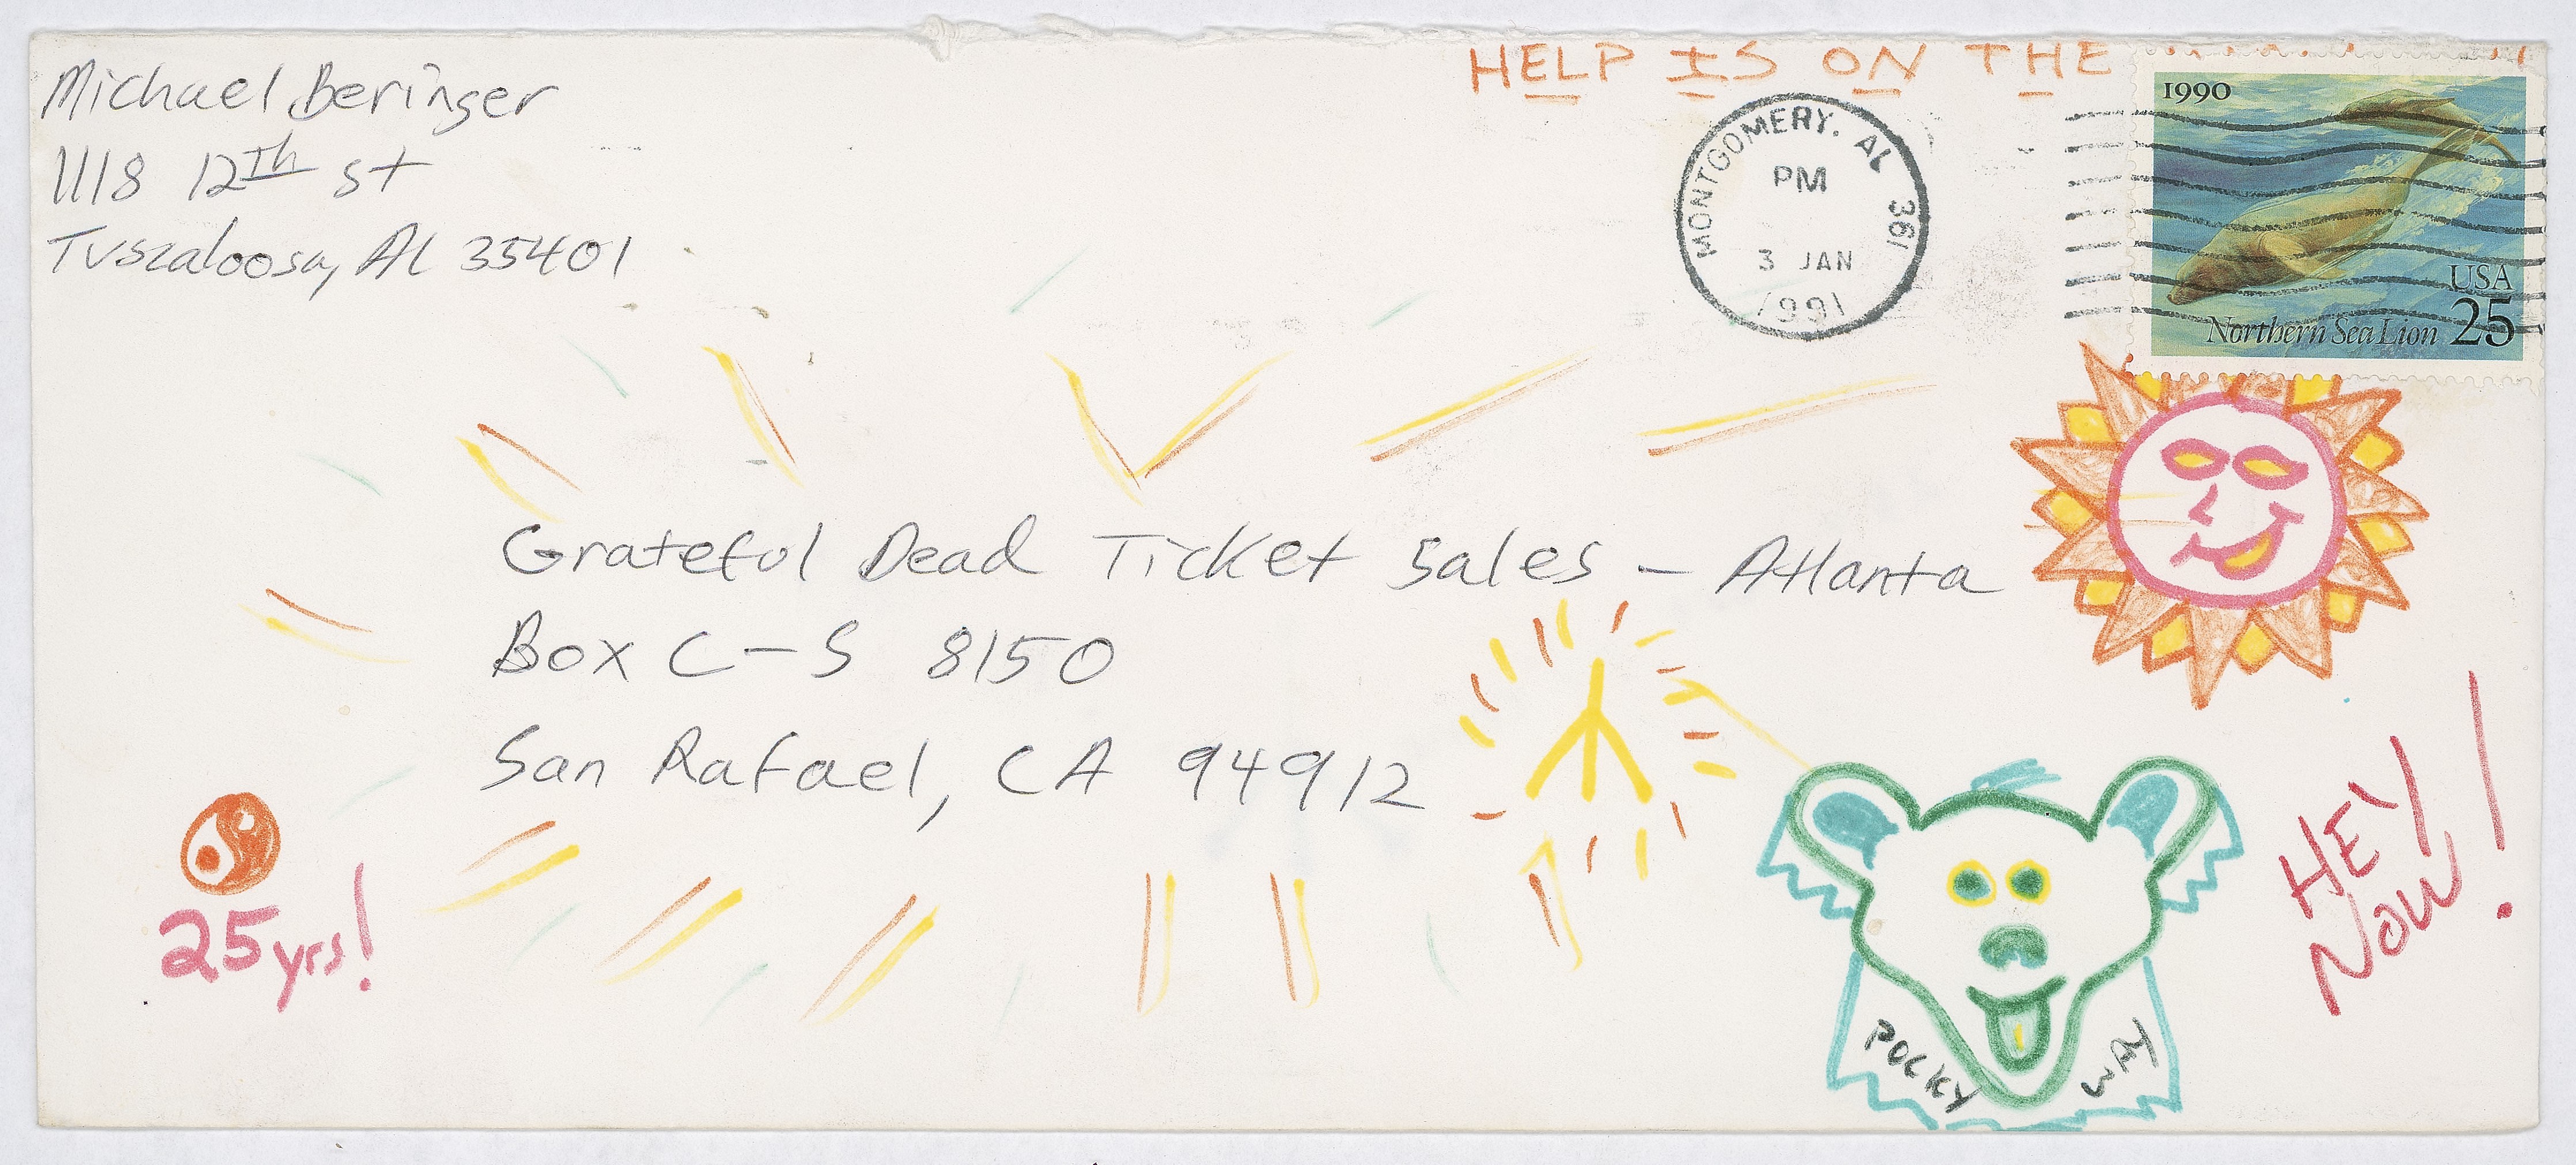 Michael Beringer
1118 12th st
Tuscaloosa, AL 35401
HELP IS ON THE
MONTGOMERY, AL 361
PM
3 JAN
1991
1990
USA
Northern Sea Lion 25
Grateful Dead Ticket Sales - Atlanta
Box C-S 8150
San Rafael, CA 94912
25 yrs!
HEY
NOW!
POCKY WAY